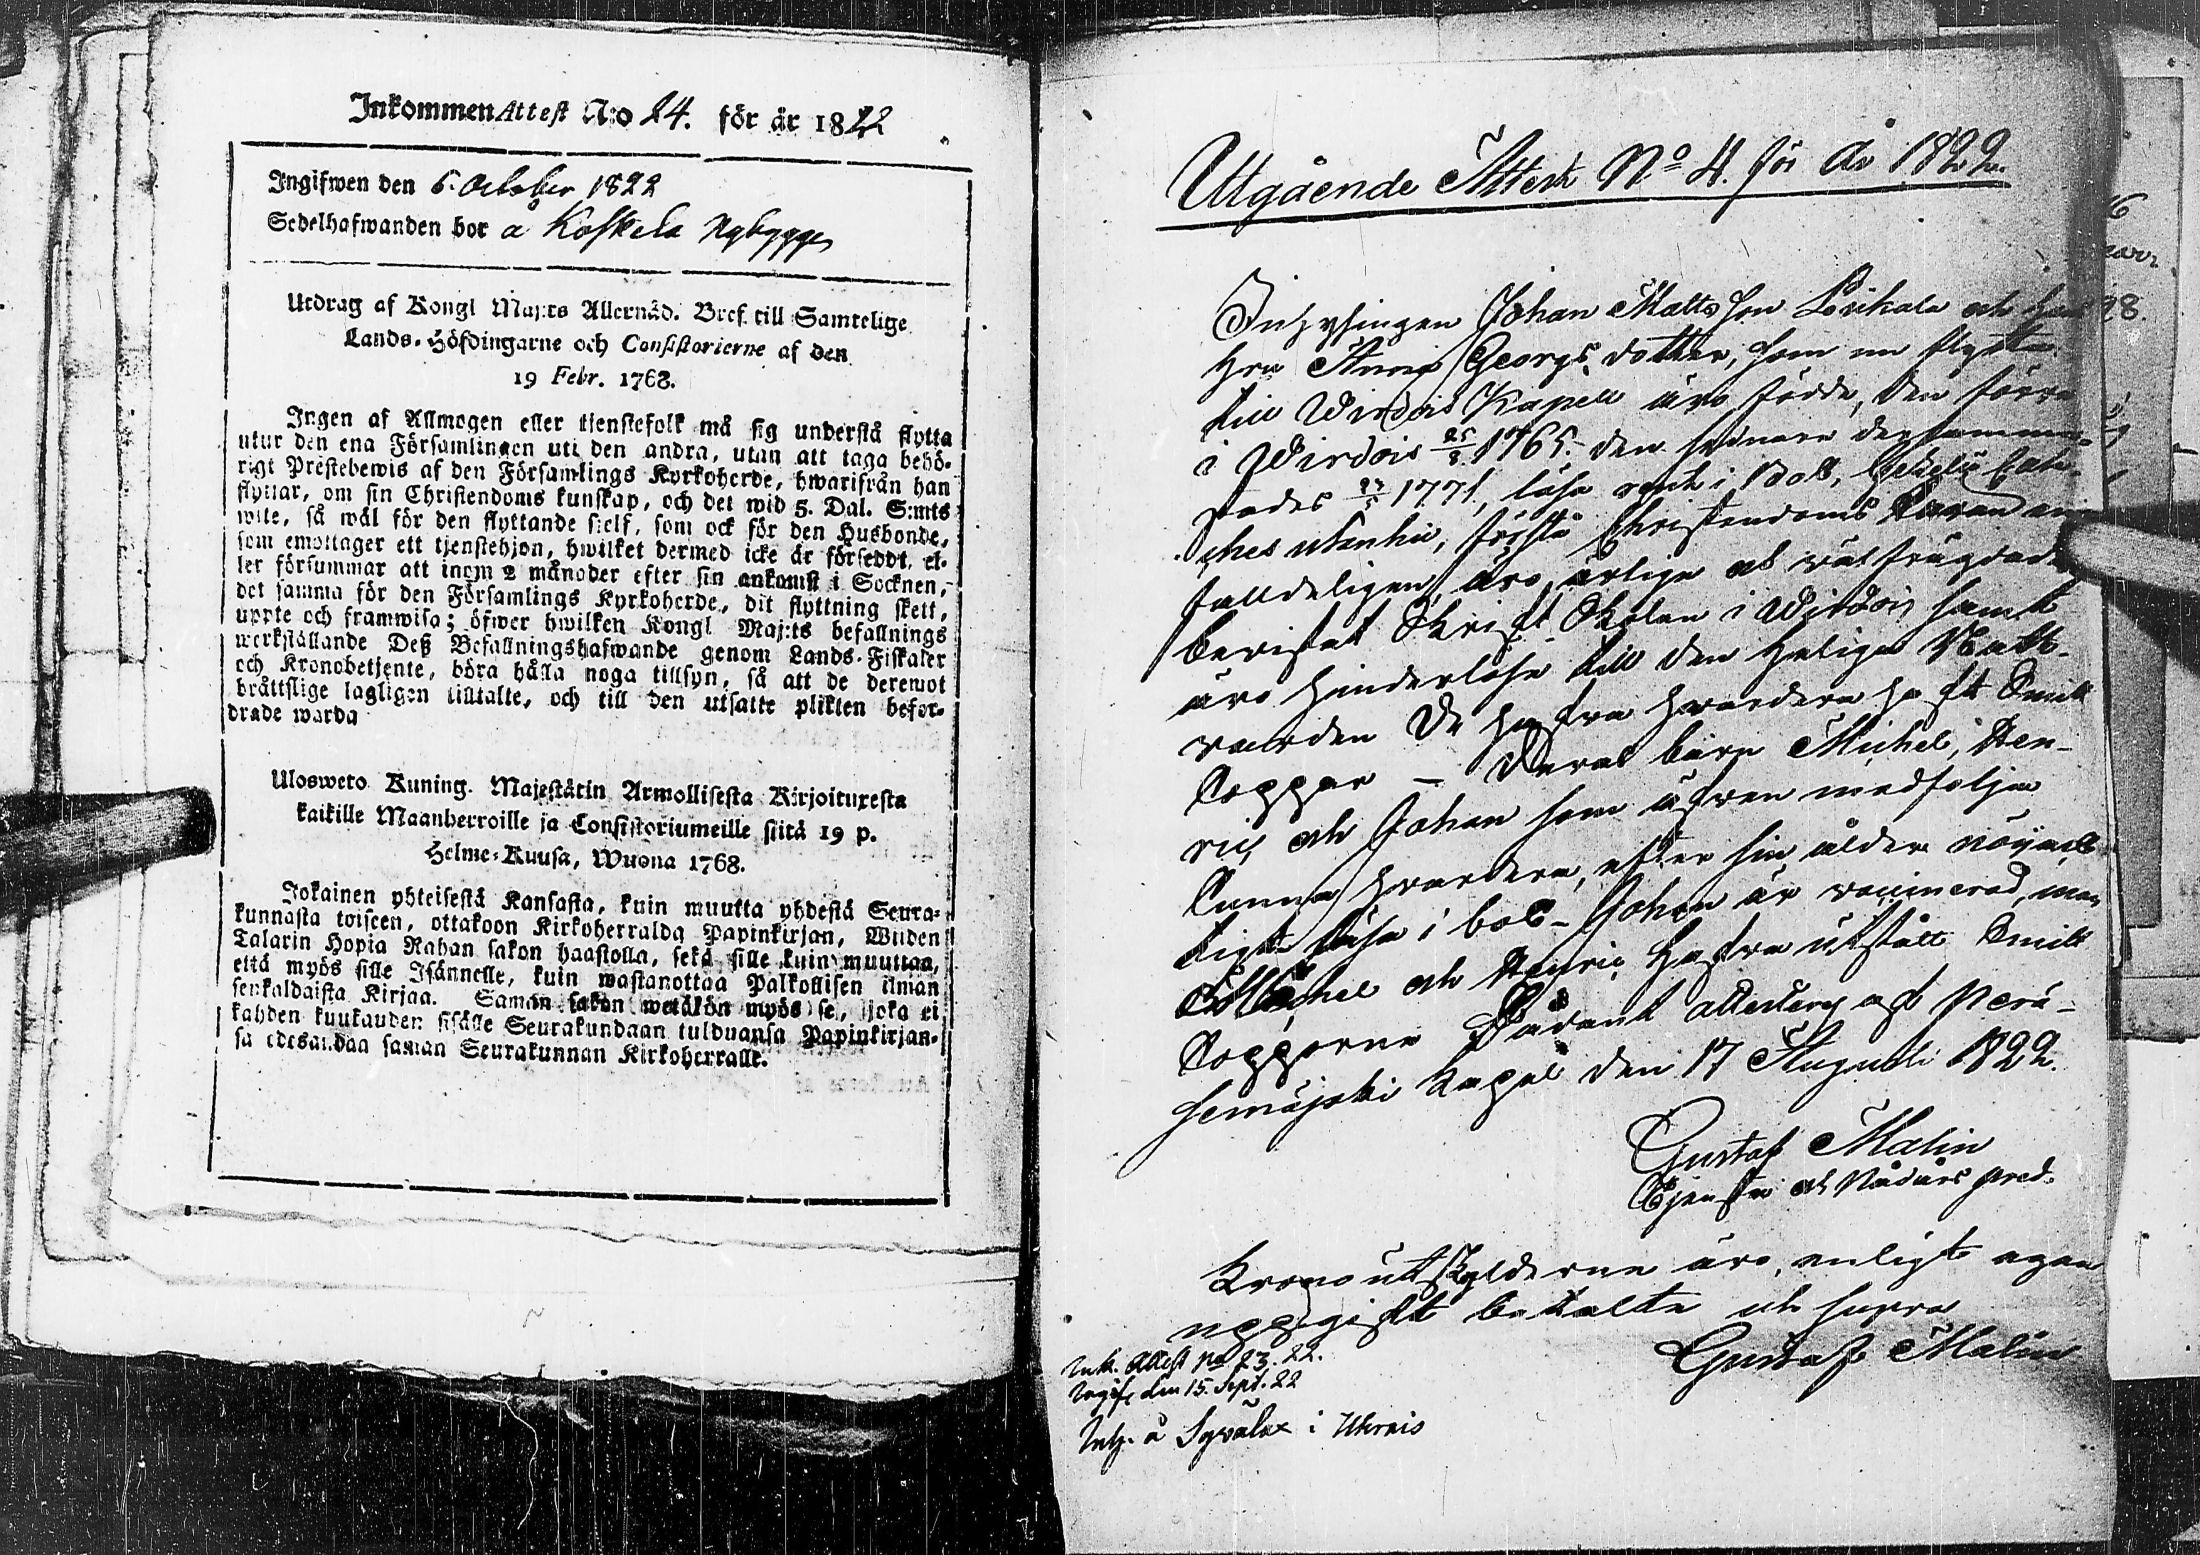 Inkommen Attest N:o 24. för år 1822
Ingifwen den 6. October 1822
Sedelhafwanden bor å Koskela Nybygge
Utdrag af Kongl Maj:ts Allernåd. Bref till Samtelige
Lands-Höfdingarne och Consistorierne af den
19 Febr. 1768.
Ingen af Allmogen eller tjenstefolk må sig understå flytta
utur den ena Församlingen uti den andra, utan att taga behö-
rigt Prestebewis af den Församlings Kyrkoherde, hwarifrån han
flyttar, om sin Christendoms kunskap, och det wid 5. Dal. S:mts
wite, så wäl för den flyttande sjelf, som ock för den Husbonde,
som emottager ett tjenstehjon, hwilket dermed icke är förseddt, el-
ler försummar att inom 2 månader efter sin ankomst i Socknen,
det samma för den Församlings Kyrkoherde, dit flyttning skett,
uppte och framwisa; öfwer hwilken Kongl Maj:ts befallnings
werkställande Deß Befallningshafwande genom Lands-Fiskaler
och Kronobetjente, böra hålla noga tillsyn, så att de deremot
bråttslige lagligen tilltalte, och till den utsatte plikten befor-
drade warda
Ulosweto Kuning. Majestätin Armollisesta Kirjoituxesta
kaikille Maanherroille ja Consistoriumeille siitä 19 p.
Helme-Kuusa, Wuona 1768.
Jokainen yhteisestä Kansasta, kuin muutta yhdestä Seura-
kunnasta toiseen, ottakoon Kirkoherralda Papinkirjan, Wiiden
Talarin Hopia Rahan sakon haastolla, sekä sille kuin muuttaa,
että myös sille Isännelle, kuin wastanottaa Palkollisen ilman
senkaldaista Kirjaa. Saman sakon wetäkön myös se, joka ei
kahden kuukauden sisälle Seurakundaan tulduansa Papinkirjan-
sa edesandaa saman Seurakunnan Kirkoherralle.
Utgående Attest No 4. för år 1822.
Inhysingen Johan Mattsson Loukala och hans
Hru Anna Georgs dotter, som nu flytta
till Wirdois Kapell äro födde, den förra
i Wirdois 25/8 1765. den sednare der samma-
stades 1771, läsa rent i Bok,
ches utanlil, förstå Christendoms Läran en-
falldeligen, äro ärlige och wäl frägdade
bevistat Skrift Skolan i Wirdois samt
äro hinderlöse till den Heliga Natt-
warden De hafva hvardera haft Smitt
Koppor - Deras barn Michel, Hen-
ric och Johan som äfven medfölja
kunna hvardera, efter sin ålder nöjack-
tigt läsa i bok - Johan är vaccinerad, men
Michel och Henric hafva utstått Smitt
Kopporna Sådant attesteras af Perä-
semäjoki Kapel den 17 Augusti 1822.
Gustaf Malin
Tjenste och Nådårs pred.
Krono utskylderne äro, enligt egen
uppgift betalte ut supra
Gustaf Malin
Ink. Attest No 23. 22.
Ingif. den 15. Sept. 22
Inh. å Sysälä i